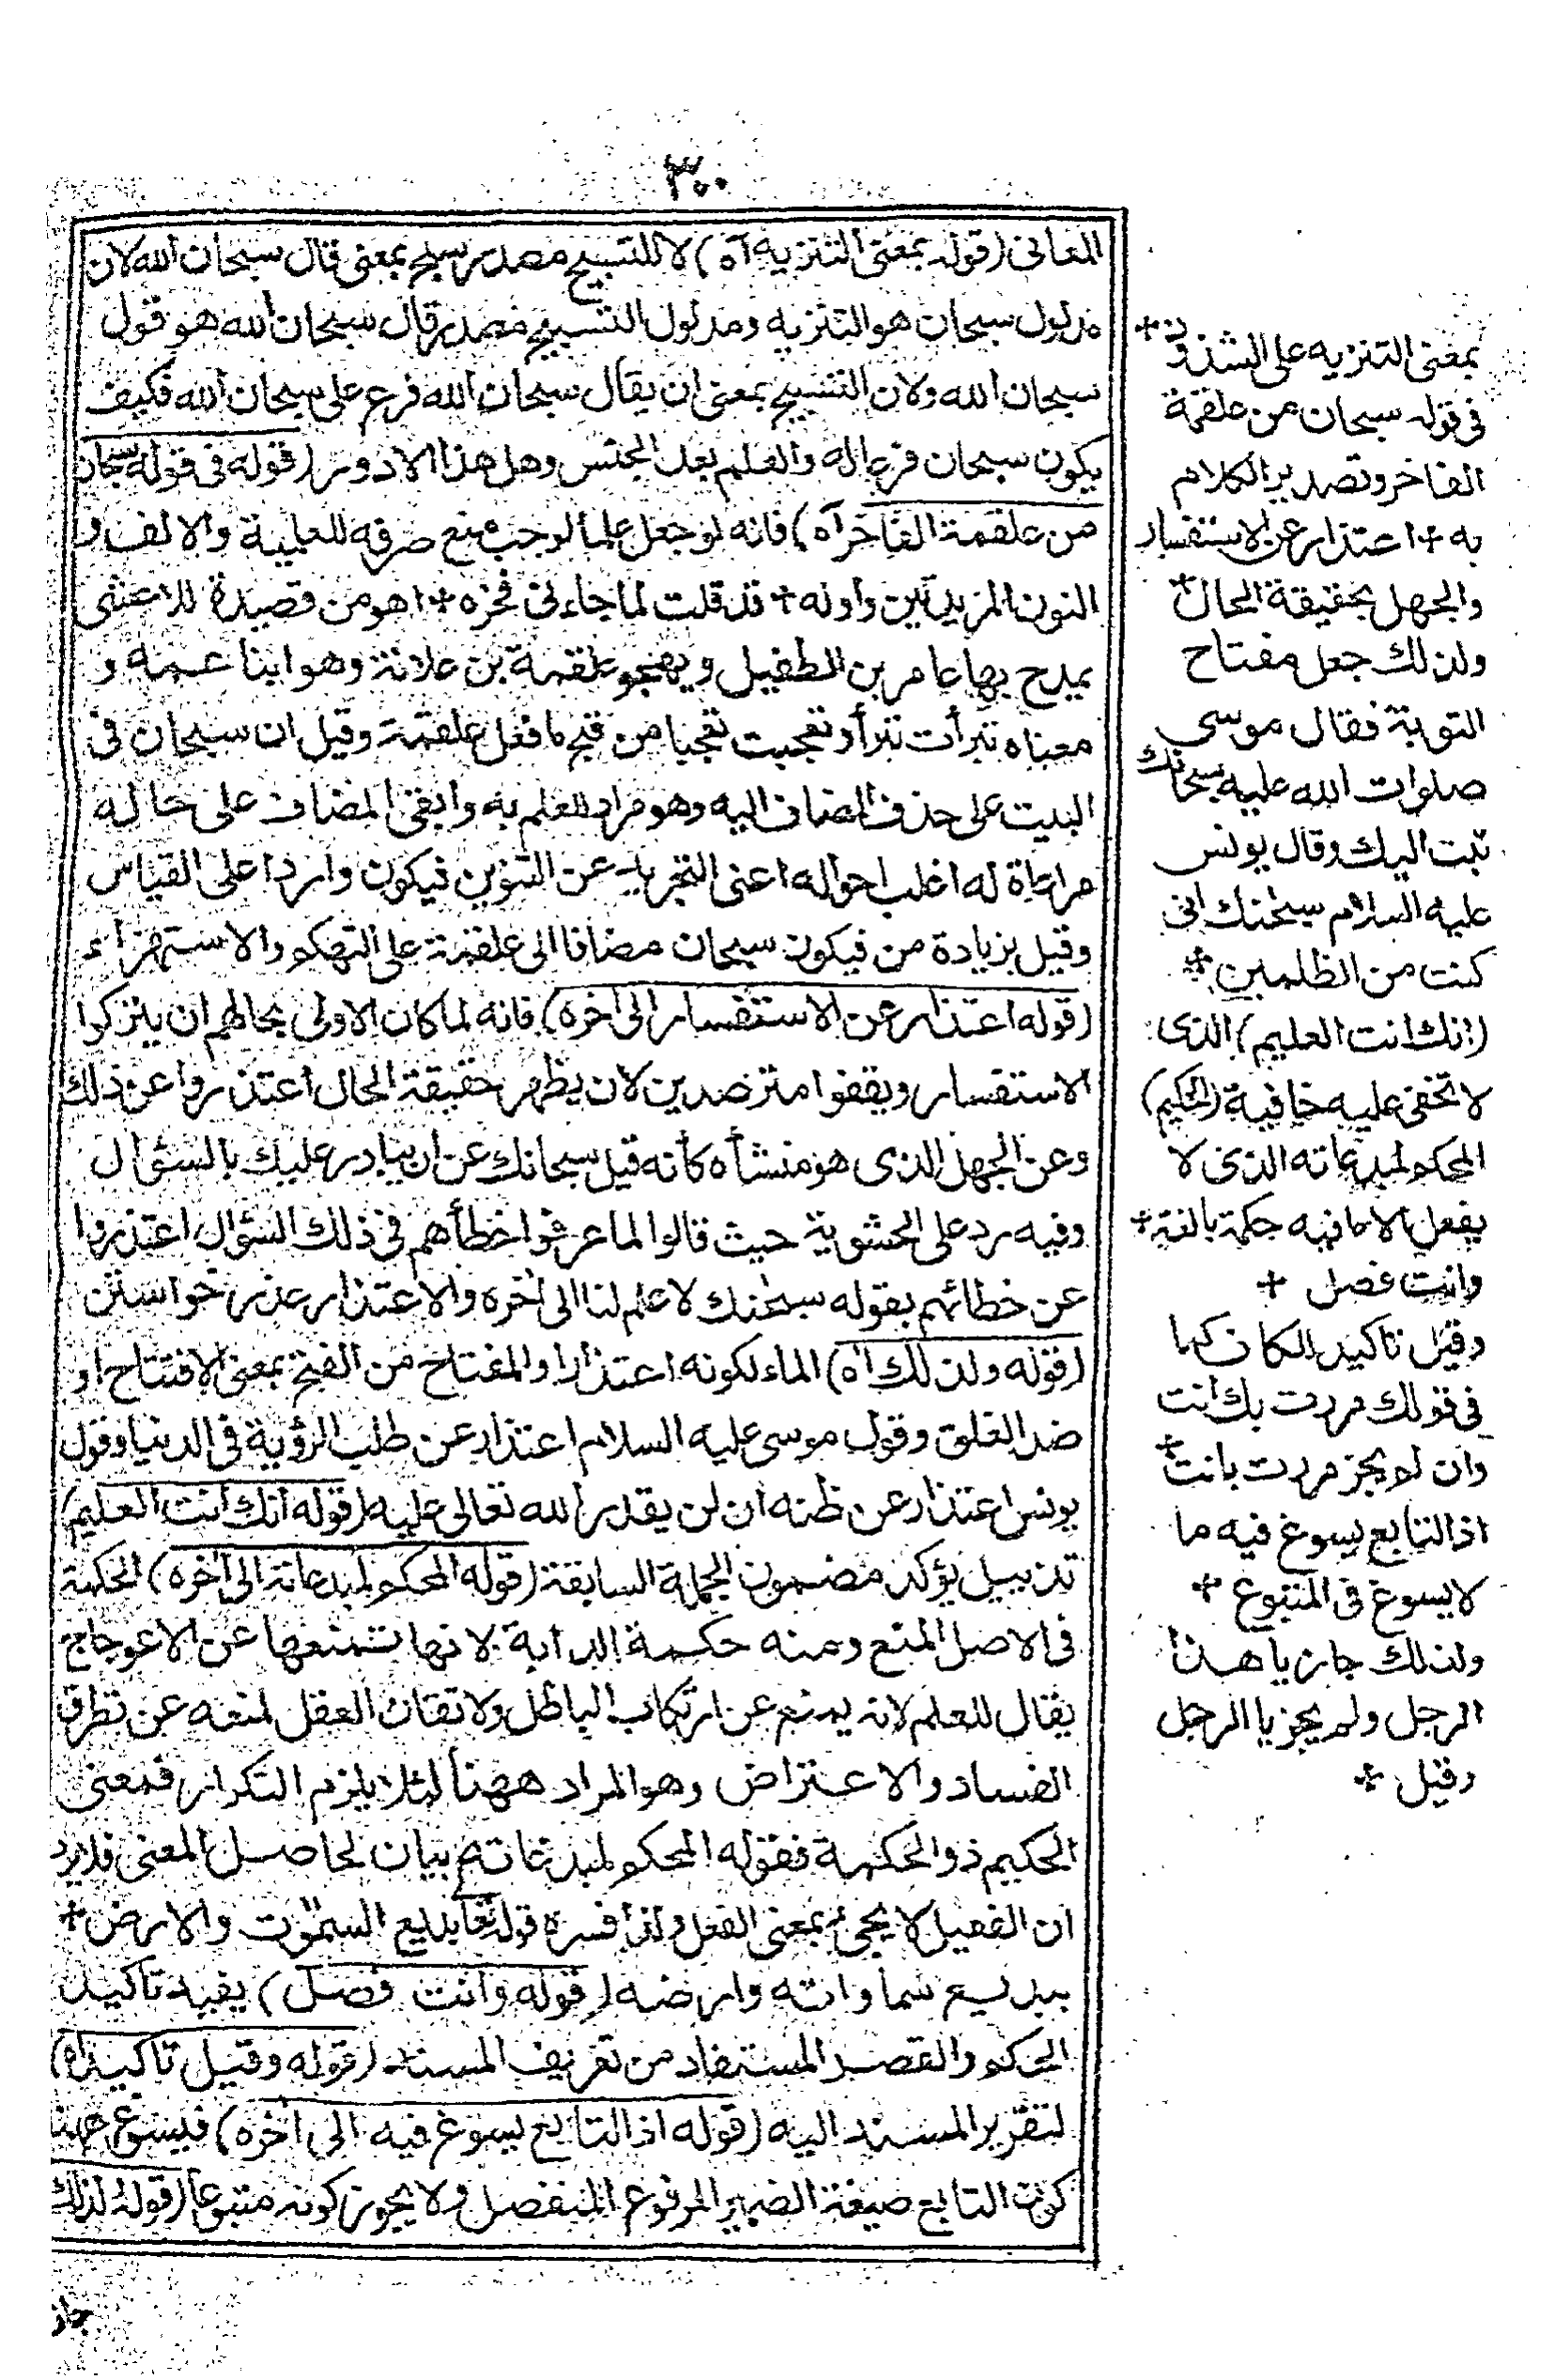 ٣٠٠
المعانى (قوله بمعنى التنزيه آه) لا للتسبيح مصدر سبح بمعنى قال سبحان الله لان
مدلول سبحان هو التنزيه ومدلول التسبيح مصدر قال سبحان الله هو قول
سبحان الله ولان التسبيح بمعنى ان يقال سبحان الله فرع على سبحان الله فكيف
يكون سبحان فرعا له والعلم بعد الجنس وهل هذا الا دور (قوله فى قوله سبحان
من علقمة الفاخر آه) فانه لو جعل علما لوجب منع صرفه للعلمية والالف و
النون المزيدتين واوله + قد قلت لما جاءنى فخره + اهو من قصيدة للاعشى
يمدح بها عامر بن الطفيل ويهجو علقمة بن علاثة وهو ابنا عمه و
معناه تبرأت تبرأ وتعجبت تعجبا من قبح ما فعل علقمة وقيل ان سبحان فى
البيت على حذف المضاف اليه وهو مراد للعلم به وابقى المضاف على حاله
مراعاة له اغلب احواله اعنى التجريد عن التنوين فيكون واردا على القياس
وقيل بزيادة من فيكون سبحان مضافا الى علقمة على التهكم والاستهزاء
(قوله اعتذار عن الاستفسار الى آخره) فانه لما كان الاولى بحالهم ان يتركوا
الاستفسار ويقفوا مترصدين لان يظهر حقيقة الحال اعتذروا عن ذلك
وعن الجهل الذى هو منشأه كأنه قيل سبحانك عن ان يبادر عليك بالسؤال
وفيه رد على الحشوية حيث قالوا لما عرفوا خطأهم فى ذلك السؤال اعتذروا
عن خطائهم بقوله سبحنك لا علم لنا الى آخره والاعتذار عذر خواستن
(قوله ولذلك آه) الماء لكونه اعتذارا والمفتاح من الفتح بمعنى الافتتاح او
ضد الغلق وقول موسى عليه السلام اعتذار عن طلب الرؤية فى الدنيا وقول
يونس اعتذار عن ظنه ان لن يقدر الله تعالى عليه (قوله انك انت العليم)
تذييل يؤكد مضمون الجملة السابقة (قوله المحكم لمبدعاته الى آخره) الحكمة
فى الاصل المنع ومنه حكمة الدابة لانها تمنعها عن الاعوجاج
يقال للعلم لانه يمنع عن ارتكاب الباطل ولاتقان العقل لمنعه عن تطرق
الفساد والاعتراض وهو المراد ههنا لئلا يلزم التكرار فمعنى
الحكيم ذو الحكمة فقوله المحكم لمبدعاته بيان لحاصل المعنى فلا يرد
ان الفعيل لا يجئ بمعنى المفعل ولذا فسره قوله تعا بديع السموت والارض +
ببديع سماواته وارضه (قوله وانت فصل) يفيد تاكيد
الحكم والقصر المستفاد من تعريف المسند (قوله وقيل تاكيد آه)
لتقرير المسند اليه (قوله اذ التابع يسوغ فيه الى آخره) فيسوغ ههنا
كون التابع صيغة الضمير المرفوع المنفصل ولا يجوز كونه متبوعا (قوله لذلك
جاز
بمعنى التنزيه على الشذوذ +
فى قوله سبحان من علقمة
الفاخر وتصدير الكلام
به + اعتذار عن الاستفسار
والجهل بحقيقة الحال +
ولذلك جعل مفتاح
التوبة فقال موسى
صلوات الله عليه سبحانك
تبت اليك وقال يونس
عليه السلام سبحنك انى
كنت من الظلمين +
(انك انت العليم) الذى
لا تخفى عليه خافية (الحكيم)
المحكم لمبدعاته الذى لا
يفعل الا ما فيه حكمة بالغة +
وانت فصل +
وقيل تاكيد للكاف كما
فى قولك مررت بك انت
وان لم يجز مررت بانت +
اذ التابع يسوغ فيه ما
لا يسوغ فى المتبوع +
ولذلك جاز يا هذا
الرجل ولم يجز يا الرجل
وقيل +